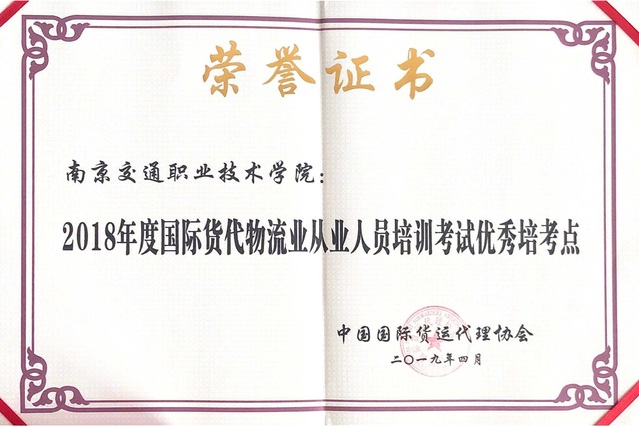 荣誉证书
南京交通职业技术学院：
2018年度国际货代物流业从业人员培训考试优秀培考点
中国国际货运代理协会
二〇一九年四月